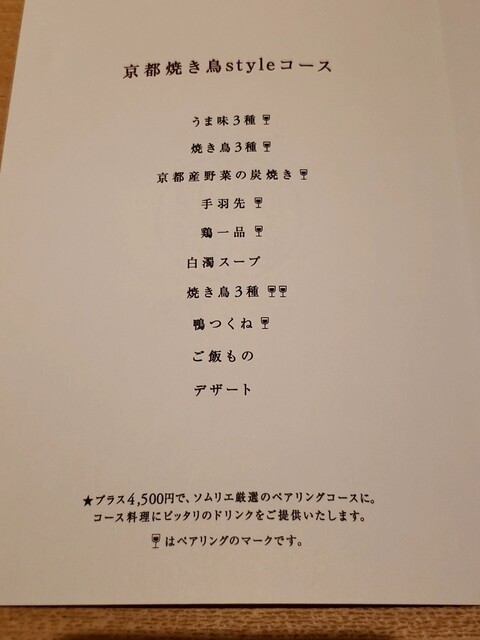 京都焼き鳥styleコース
うま味3種🍷
焼き鳥3種🍷
京都産野菜の炭焼き🍷
手羽先🍷
鶏一品🍷
白濁スープ
焼き鳥3種🍷🍷
鴨つくね🍷
ご飯もの
デザート
★プラス4,500円で、ソムリエ厳選のペアリングコースに。
コース料理にピッタリのドリンクをご提供いたします。
🍷はペアリングのマークです。